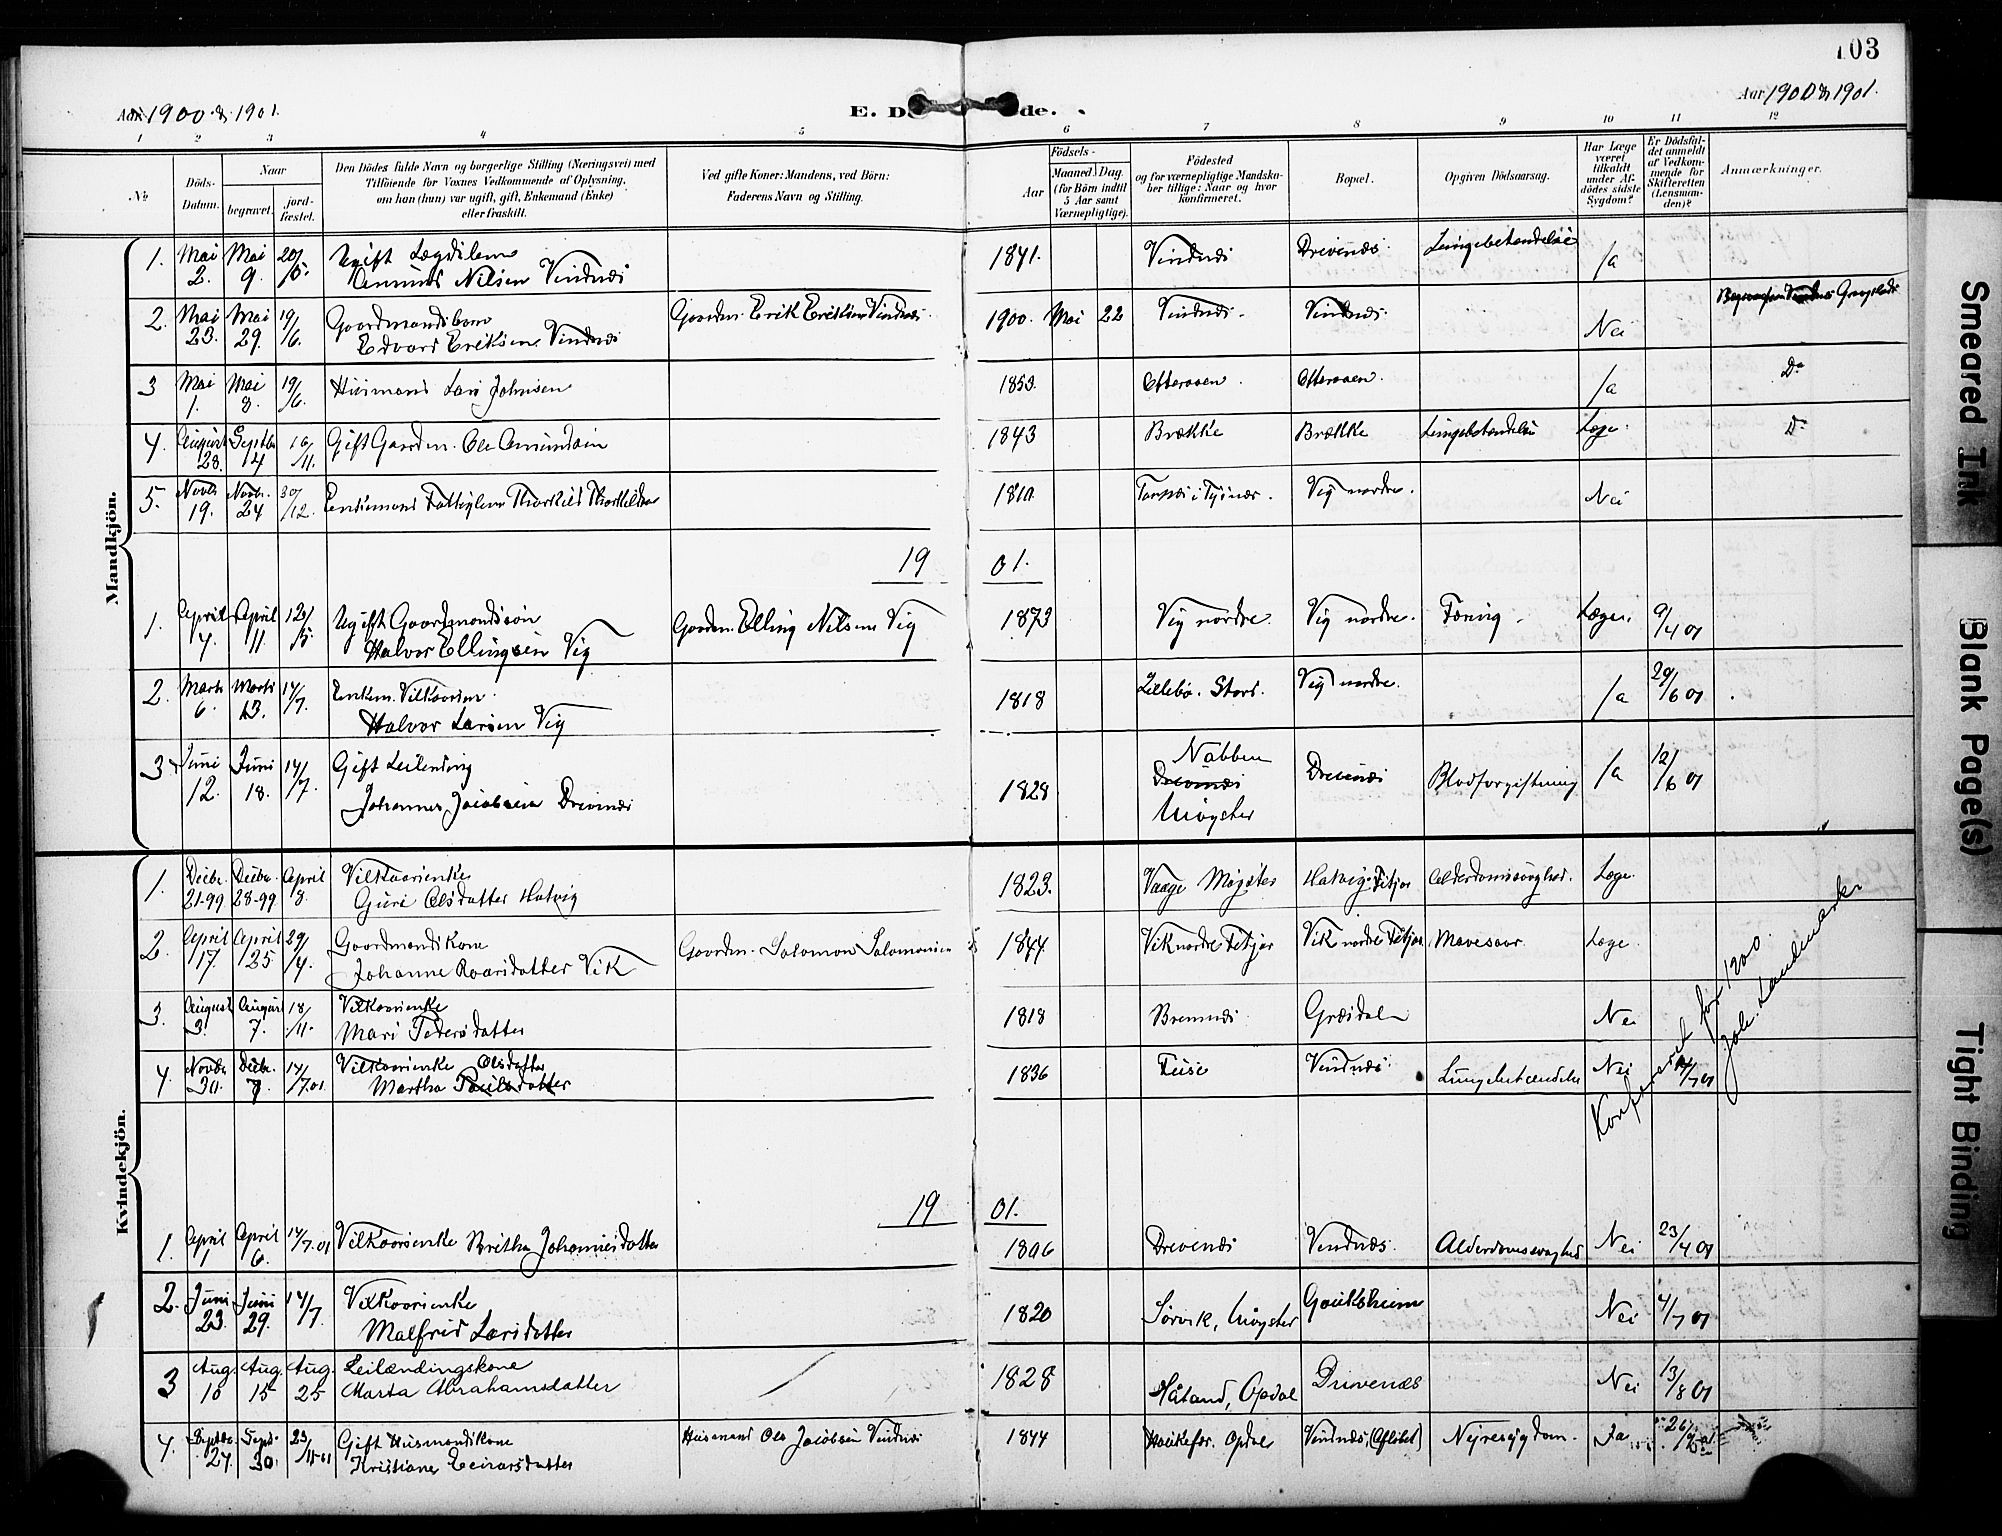 103
Aar 1900 & 1901.
E. D de.
Aar 1900 & 1901.
1 2 3 4 5 6 7 8 9 10 11 12
No
Döds-Datum.
Naar
begravet.
jord-fæstet.
Den Dödes fulde Navn og borgerlige Stilling (Næringsvei) med
Tilföiende for Voxnes Vedkommende af Oplysning,
om han (hun) var ugift, gift, Enkemand (Enke)
eller fraskilt.
Ved gifte Koner: Mandens, ved Börn:
Faderens Navn og Stilling.
Födsels-
Aar
Maaned. Dag.
(for Börn indtil
5 Aar samt
Værnepligtige).
Födested
og for værnepligtige Mandska-
ber tillige: Naar og hvor
konfirmeret.
Bopæl.
Opgiven Dödsaarsag.
Har Læge
været
tilkaldt
under Af-
dödes sidste
Sygdom?
Er Dödsfal-
det anmeldt
af Vedkom-
mende for
Skifteretten
(Lensman-
den)?
Anmærkninger.
Mandkjön.
1. Mai 2. Mai 9. 20/5. Ugift Lægdslem Amund Nilsen Vindnæs 1841. Vindnæs Drivenæs. Lungebetændelse Ja
2. Mai 23. Mai 29. 19/6. Gaardmandsbarn Edvard Eriksen Vindnæs Gaardm. Erik Eriksen Vindnæs. 1900. Mai 22 Vindnæs. Vindnæs. Nei
3 Mai 1. Mai 8. 19/6. Husmand Lars Johnsen 1853. Ja Do
4. August 28. Septbr 14 16/11. Gift Gaardm. Ole Amundsen 1843 Brække Brække Lungebetændelse Læge. Do
5. Novbr 19. Novbr. 24 30/12. Enkemand Fattiglem Thorkild Thorkildsen 1810. Vig nordre. Nei
1901.
1. April 4. April 11. Ugift Gaardmandssön Halvor Ellingsen Vig Gaardm. Elling Nilsen Vig 1873 Vig nordre. Vig nordre. Tæring. Læge. 9/4 01
2. Marts 6. Marts 13. 14/7. Enkem. Vilkaarsm. Halvor Larsen Vig 1818 Lillebø. Stord. Vig nordre. Ja 29/6 01
3 Juni 12. Juni 18. 14/7. Gift Leilending Johannes Jacobsen Drivenæs 1828 Nabben Drivenæs Møgster Drivenæs Blodforgiftning Ja 12/6 01
Kvindekjön.
1. Decbr. 21-99 Decbr. 28-99 April 8. Vilkaarsenke Guri Olsdatter Hatvig 1823. Vaage Møgster Hatvig Fitjar Alderdomssvaghed. Læge.
2. April 17. April 25 29/4. Gaardmandskone Johanne Roarsdatter Vik Gaardm. Salomon Salomonsen 1844 Vik nordre Fitjar Vik nordre Fitjar Mavesaar. Læge.
3. August 3. August 7. 18/11. Vilkaarsenke Mari Pedersdatter 1818 Bremnæs Græsdalen Nei
4. Novbr 30. Decbr. 7. 14/7.01. Vilkaarsenke Olsdatter Martha Paulsdatter 1836 Fuse Vindnæs. Lungebetændelse Nei /7 01
Konfereret før 1900.
Joh. Landmark
1901.
1. April 1 April 6. 14/7.01 Vilkaarsenke Britha Johannesdatter 1806 Drivenæs Vindnæs. Alderdomssvaghed Nei 23/4 01
2. Juni 23. Juni 29. 14/7. Vilkaarsenke Malfrid Larsdatter 1820 Sørvik, Møgster Gouksheim Nei 4/7 01
3 Aug. 10 Aug. 15 Aug. 25 Leilændingskone Marta Abrahamsdatter 1828 Håland, Opdal Drivenæs Nei 13/8 01
4. Septbr. 27. Sept. 30. Gift Husmandskone Kristiane Einarsdatter Husmand Ole Jacobsen Vindnæs 1844 Opdal Vindnæs, Nyresygdom. Ja
Smeared Ink
Blank Page(s)
Tight Binding